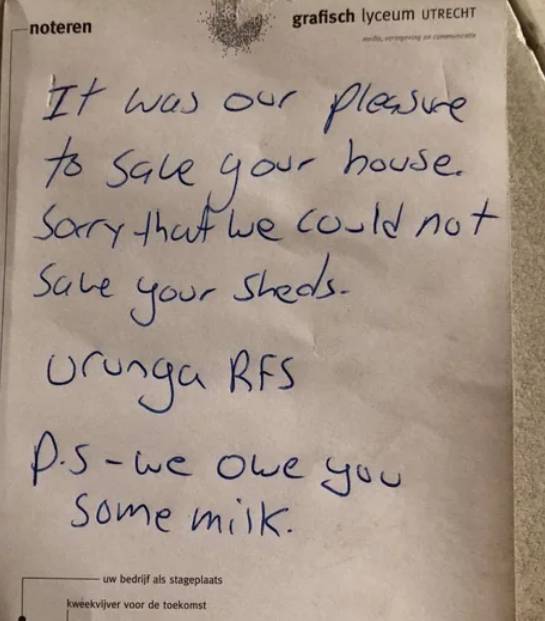 noteren
grafisch lyceum UTRECHT
media, vormgeving en communicatie
It was our pleasure
to save your house.
Sorry that we could not
save your sheds.
Urunga RFS
P.S - we owe you
some milk.
uw bedrijf als stageplaats
kweekvijver voor de toekomst